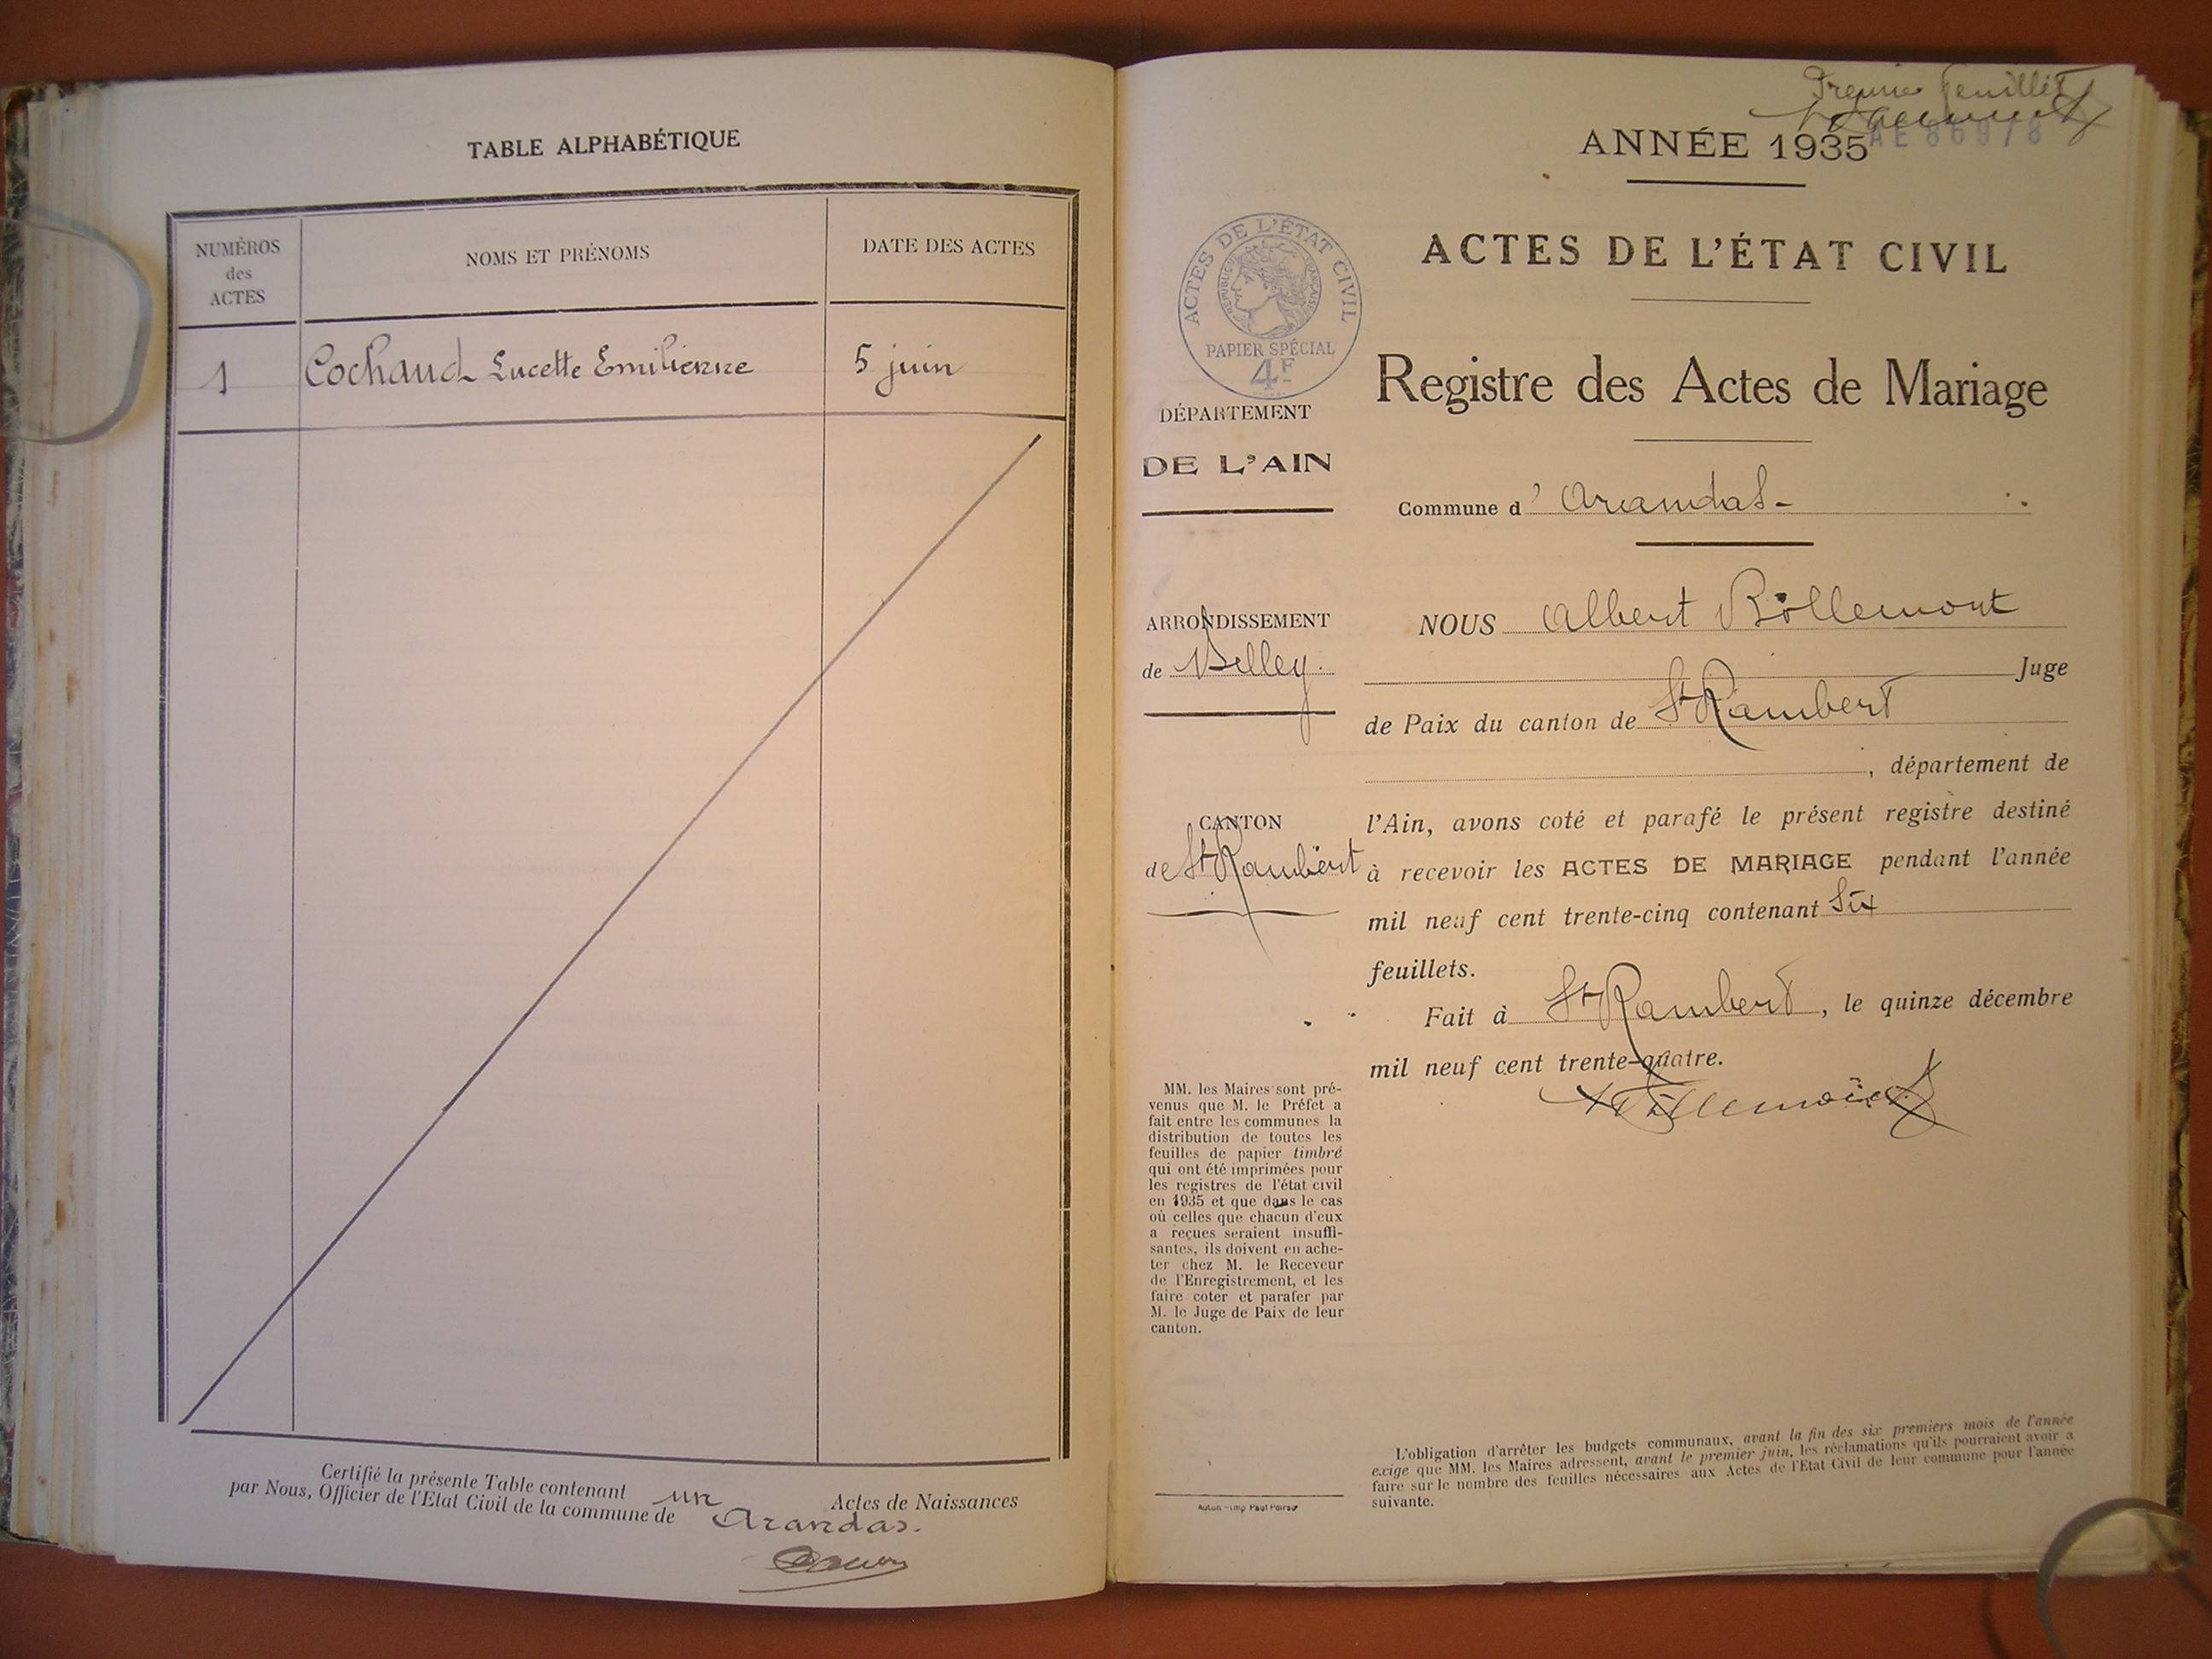 TABLE ALPHABÉTIQUE
NUMÉROS
des
ACTES
NOMS ET PRÉNOMS
DATE DES ACTES
1
Cochaud Lucette Emilienne
5 juin
Certifié la présente Table contenant un Actes de Naissances
par Nous, Officier de l'Etat Civil de la commune de Arandas.
Premier feuillet
ANNÉE 1935
AE 86978
ACTES DE L'ÉTAT CIVIL
ACTES DE L'ÉTAT CIVIL
RÉPUBLIQUE FRANÇAISE
PAPIER SPÉCIAL
4F
Registre des Actes de Mariage
DÉPARTEMENT
DE L'AIN
Commune d' Arandas-
ARRONDISSEMENT
de Belley.
CANTON
de St Rambert
NOUS Albert Rollemont
Juge
de Paix du canton de St Rambert
, département de
l'Ain, avons coté et parafé le présent registre destiné
à recevoir les ACTES DE MARIAGE pendant l'année
mil neuf cent trente-cinq contenant Six
feuillets.
Fait à St Rambert, le quinze décembre
mil neuf cent trente-quatre.
MM. les Maires sont pré-
venus que M. le Préfet a
fait entre les communes la
distribution de toutes les
feuilles de papier timbré
qui ont été imprimées pour
les registres de l'état civil
en 1935 et que dans le cas
où celles que chacun d'eux
a reçues seraient insuffi-
santes, ils doivent en ache-
ter chez M. le Receveur
de l'Enregistrement, et les
faire coter et parafer par
M. le Juge de Paix de leur
canton.
Autun - Imp Paul
L'obligation d'arrêter les budgets communaux, avant la fin des six premiers mois de l'année
exige que MM. les Maires adressent, avant le premier juin, les réclamations qu'ils pourraient avoir a
faire sur le nombre des feuilles nécessaires aux Actes de l'Etat Civil de leur commune pour l'année
suivante.